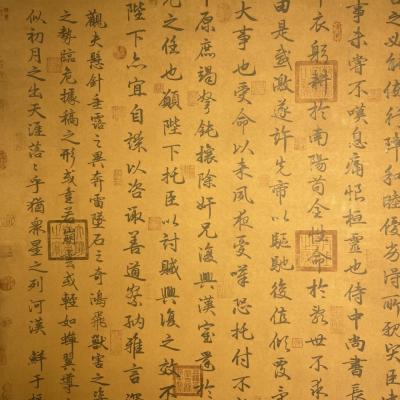 之必能使行陣和睦優劣得所親賢臣
事未嘗不嘆息痛恨桓靈也侍中尚書長
衣躬耕於南陽苟全性命於亂世不求
由是感激遂許先帝以驅馳後值傾覆
大事也受命以來夙夜憂嘆恐托付不
中原庶竭駑鈍攘除奸兇復興漢室還於
之任也願陛下托臣以討賊興復之效不
陛下亦宜自謀以咨諏善道察納雅言深
觀夫懸針垂露之異奔雷墜石之奇鴻飛獸害之
之勢臨危據槁之形或重若崩雲或輕如蟬翼導
似初月之出天涯落落乎猶眾星之列河漢 鮮于